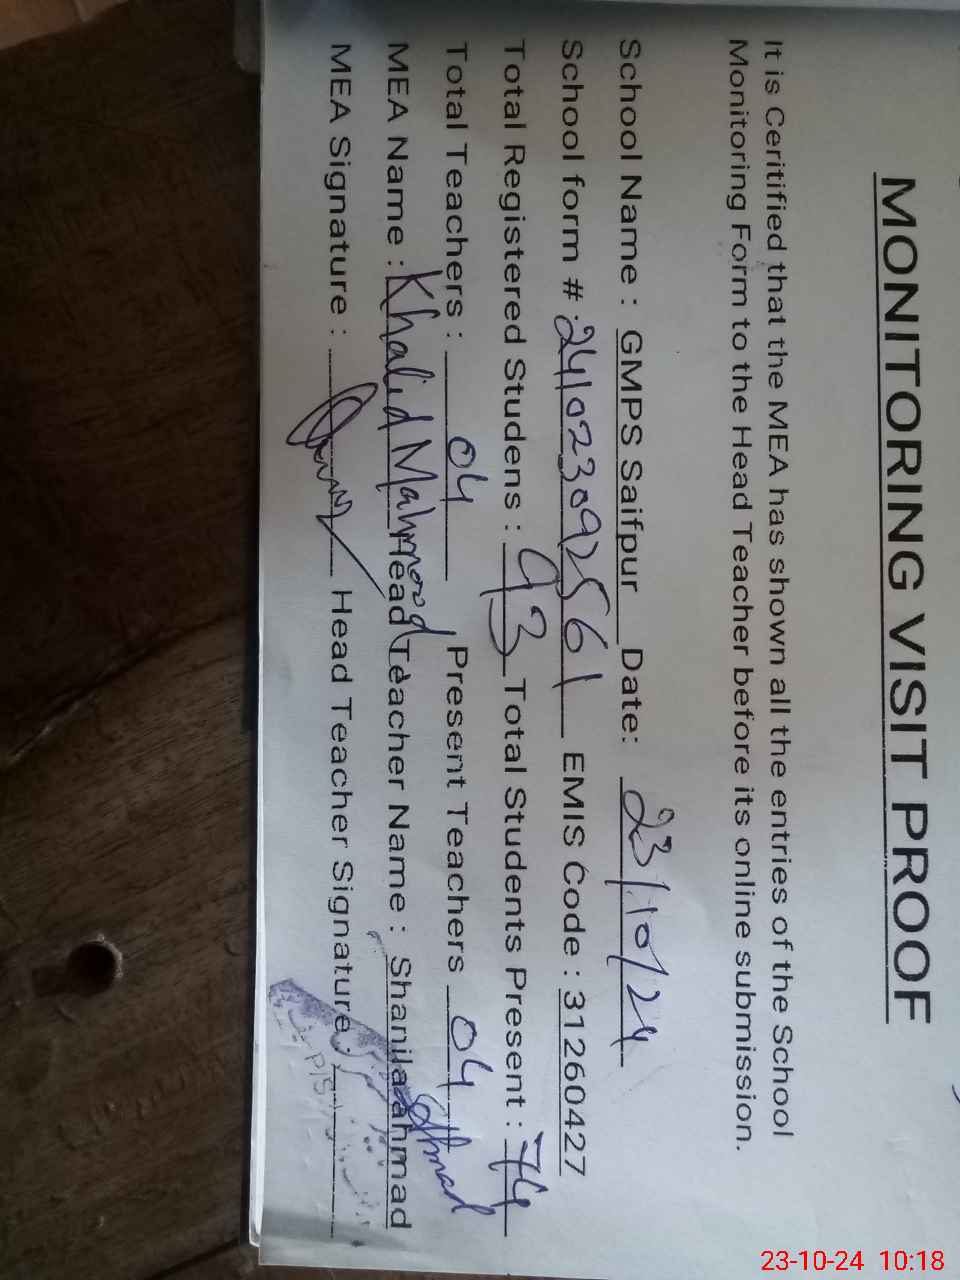 MONITORING VISIT PROOF
It is Ceritified that the MEA has shown all the entries of the School
Monitoring Form to the Head Teacher before its online submission.
School Name : GMPS Saifpur Date: 23/10/24
School form # : 241023092561 EMIS Code : 31260427
Total Registered Studens : 93 Total Students Present : 74
Total Teachers : 04 Present Teachers 04
MEA Name : Khalid Mahmood Head Teacher Name : Shanila ahmad
MEA Signature : Head Teacher Signature
Ahmad
23-10-24 10:18